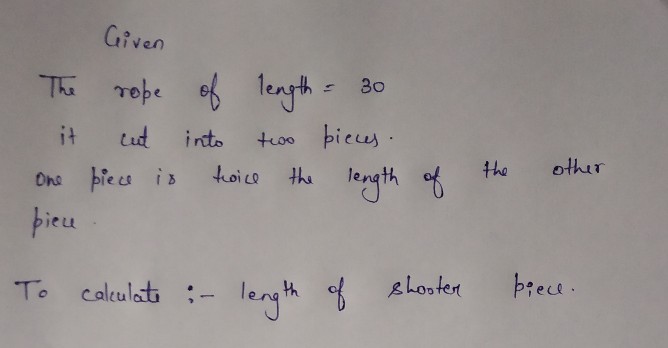 Given
The rope of length = 30
it cut into two pieces.
One piece is twice the length of the other
piece.
To calculate :- length of shooter piece.